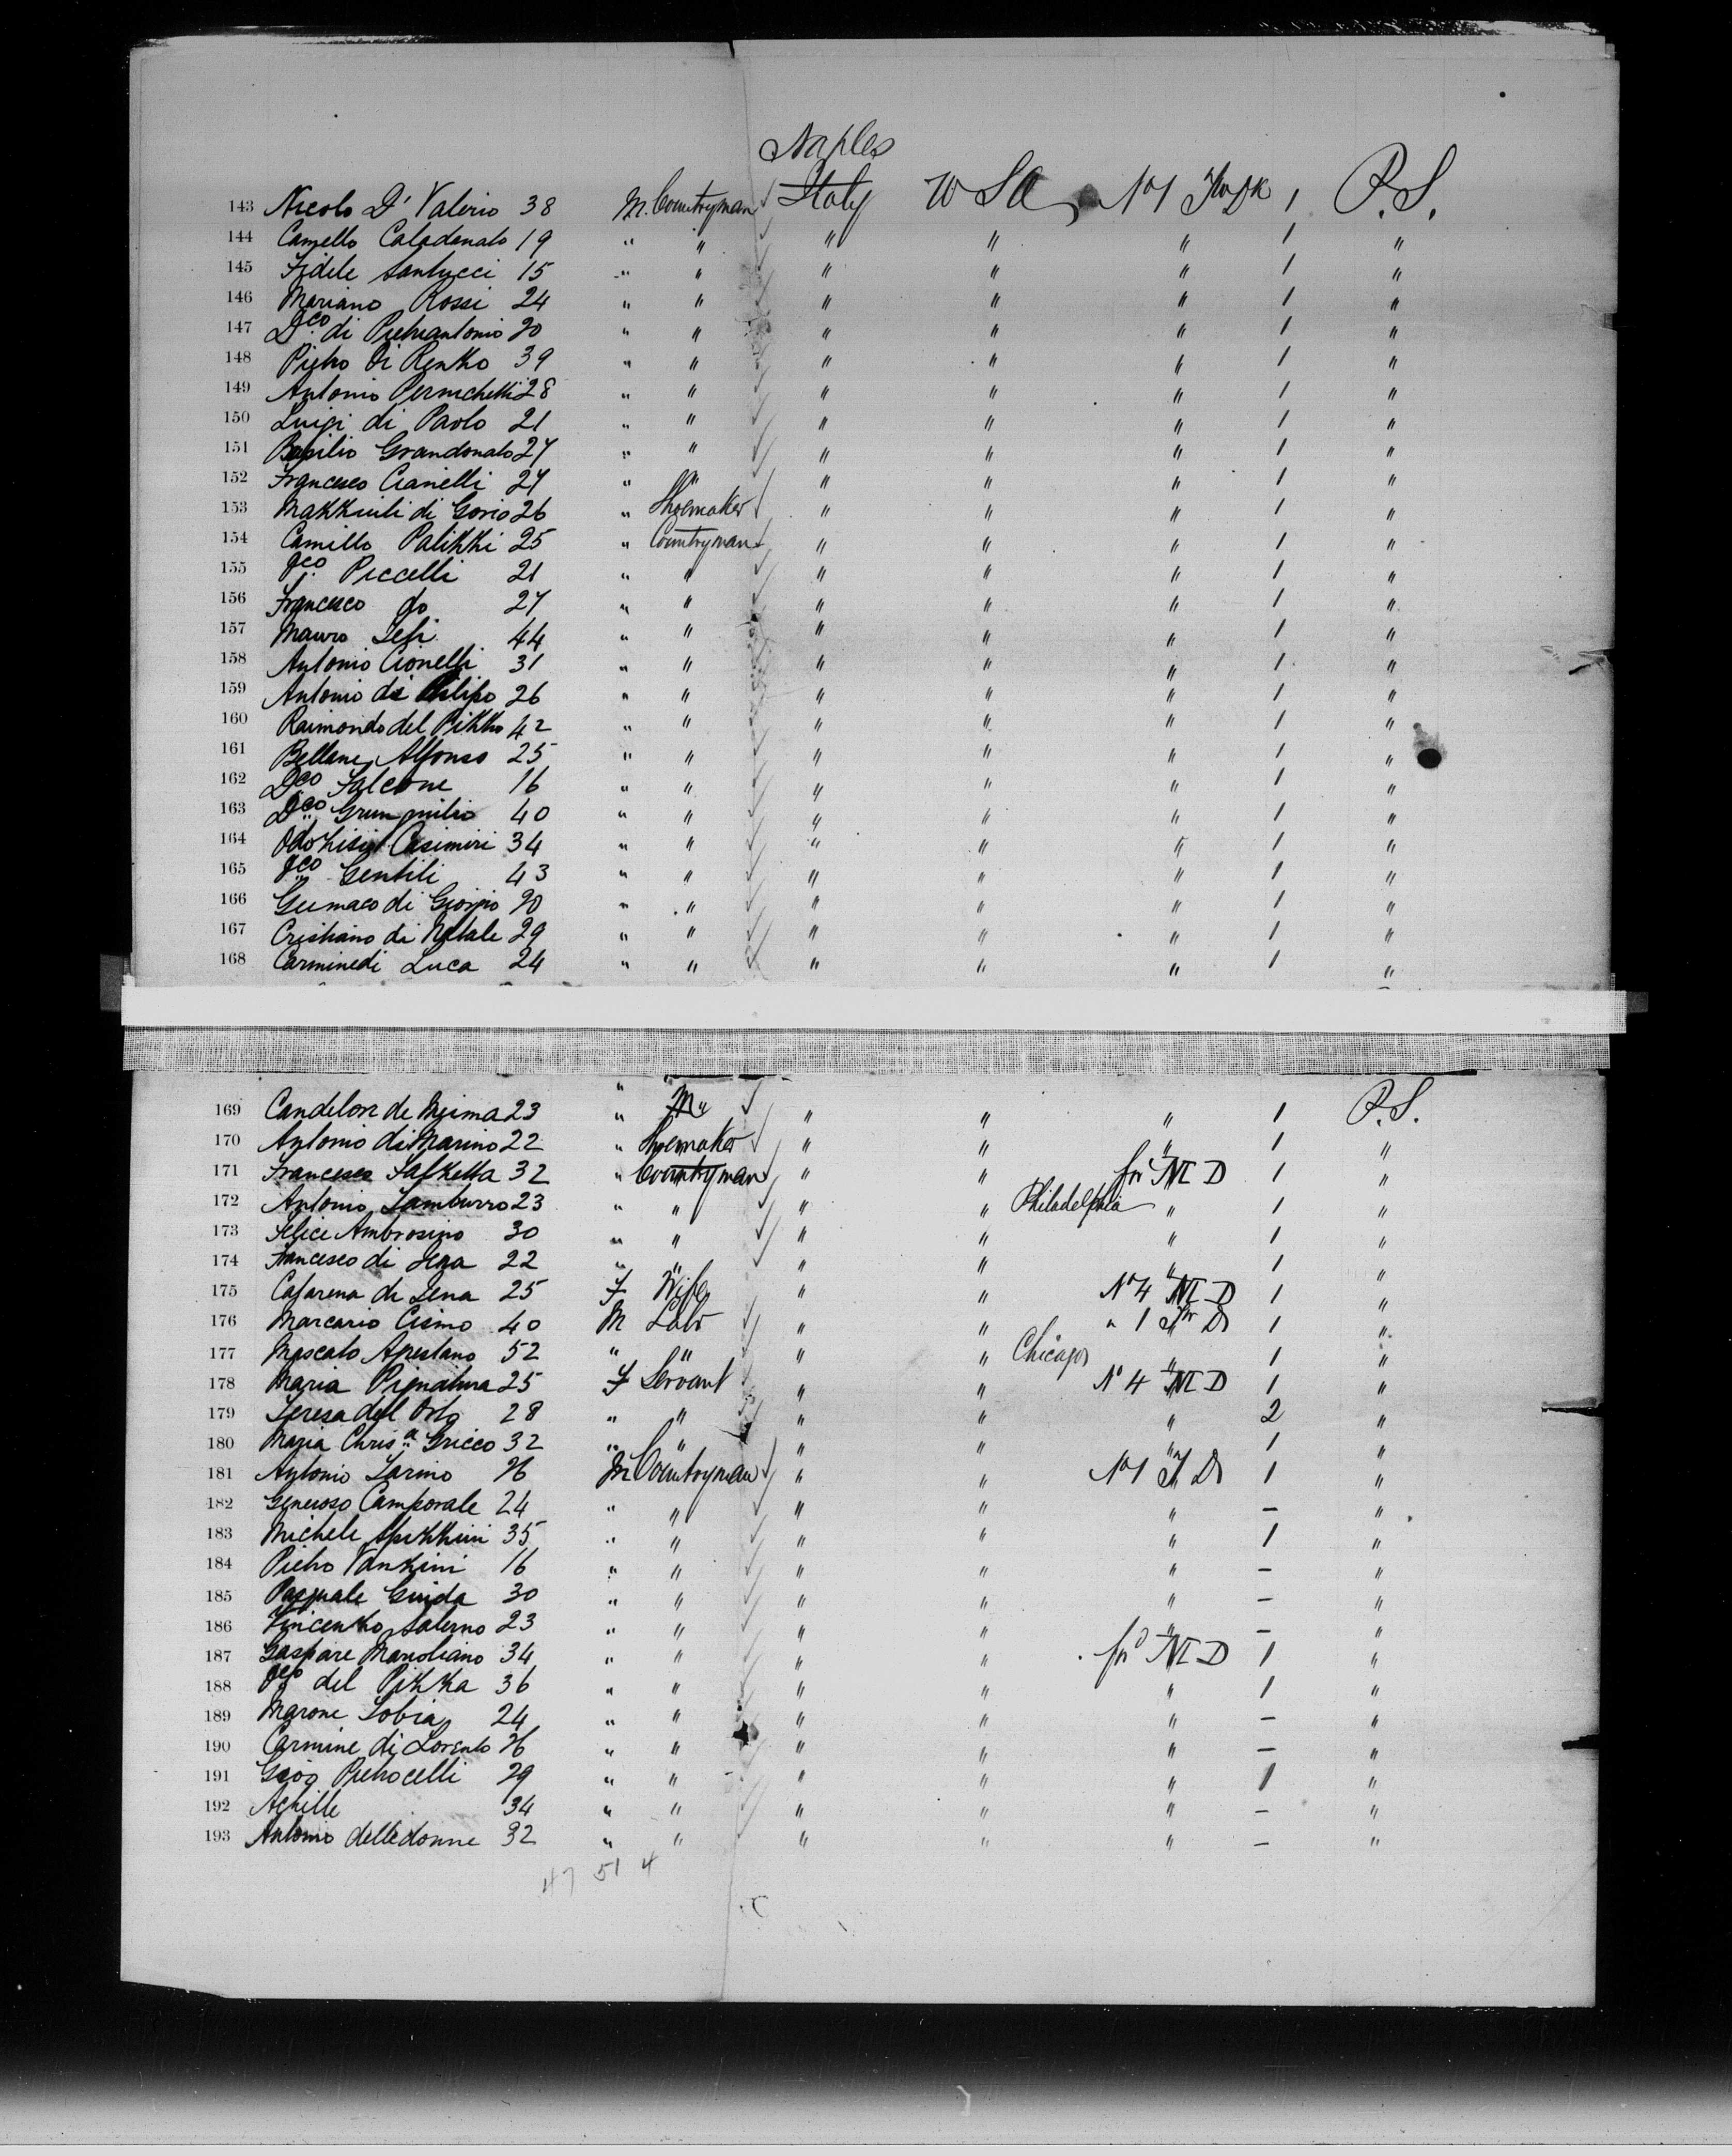 Naples
143 Nicolo D' Valerio 38 M. Countryman Italy No 1 1 P.S.
144 Camello Caladonato 19 " " " " " 1 "
145 Fidele Santucci 15 " " " " " 1 "
146 Mariano Rossi 24 " " " " " 1 "
147 Dco di Pietrantonio 20 " " " " " 1 "
148 Pietro Di Renko 39 " " " " " 1 "
149 Antonio 28 " " " " " 1 "
150 Luigi di Paolo 21 " " " " " 1 "
151 Basilio Grandonato 27 " " " " " 1 "
152 Francesco Cianelli 27 " " " " " 1 "
153 di Gorio 26 " Shoemaker " " " 1 "
154 Camillo Palikki 25 " Countryman " " " 1 "
155 Gco Piccelli 21 " " " " " 1 "
156 Francesco do 27 " " " " " 1 "
157 Mauro 44 " " " " " 1 "
158 Antonio Cionelli 31 " " " " " 1 "
159 Antonio di 26 " " " " " 1 "
160 Raimondo del Pikko 42 " " " " " 1 "
161 Bellane Alfonso 25 " " " " " 1 "
162 Dco Falcone 16 " " " " " 1 "
163 Dco 40 " " " " " 1 "
164 Casimiri 34 " " " " " 1 "
165 Gco Gentili 43 " " " " " 1 "
166 di Giorgio 20 " " " " " 1 "
167 Cristiano di Natale 29 " " " " " 1 "
168 Carmine di Luca 24 " " " " " 1 "
169 Candelora de 23 " " " " 1 P.S.
170 Antonio di Marino 22 " Shoemaker " " " 1 "
171 Francesco Falketta 32 " Countryman " " D 1 "
172 Antonio Lamburro 23 " " " " Philadelphia " 1 "
173 Felice Ambrosino 30 " " " " " 1 "
174 Francesco di Lena 22 " " " " " 1 "
175 Catarena di Lena 25 F Wife " " No 4 D 1 "
176 Marcario Cismo 40 M Labr " " " 1 1 "
177 Moscato 52 " " " " Chicago " 1 "
178 Maria Pignatura 25 F Servant " " No 4 D 1 "
179 Teresa dell Orto 28 " " " " " 2 "
180 Maria Chrisa Gricco 32 " " " " " 1 "
181 Antonio Larino 26 M Countryman " " No 1 1 "
182 Generoso Camporale 24 " " " " " — "
183 Michele 35 " " " " " 1 "
184 Pietro Vankini 16 " " " " " — "
185 Pasquale Guida 30 " " " " " — "
186 Vincenko Salerno 23 " " " " " — "
187 Gaspare Manoliano 34 " " " " D 1 "
188 Gco del Pikka 36 " " " " " 1 "
189 Marone Lobia 24 " " " " " — "
190 Carmine di Lorento 26 " " " " " — "
191 Giog Pietrocelli 29 " " " " " 1 "
192 Achille 34 " " " " " — "
193 Antonio delledonne 32 " " " " " — "
47 51 4